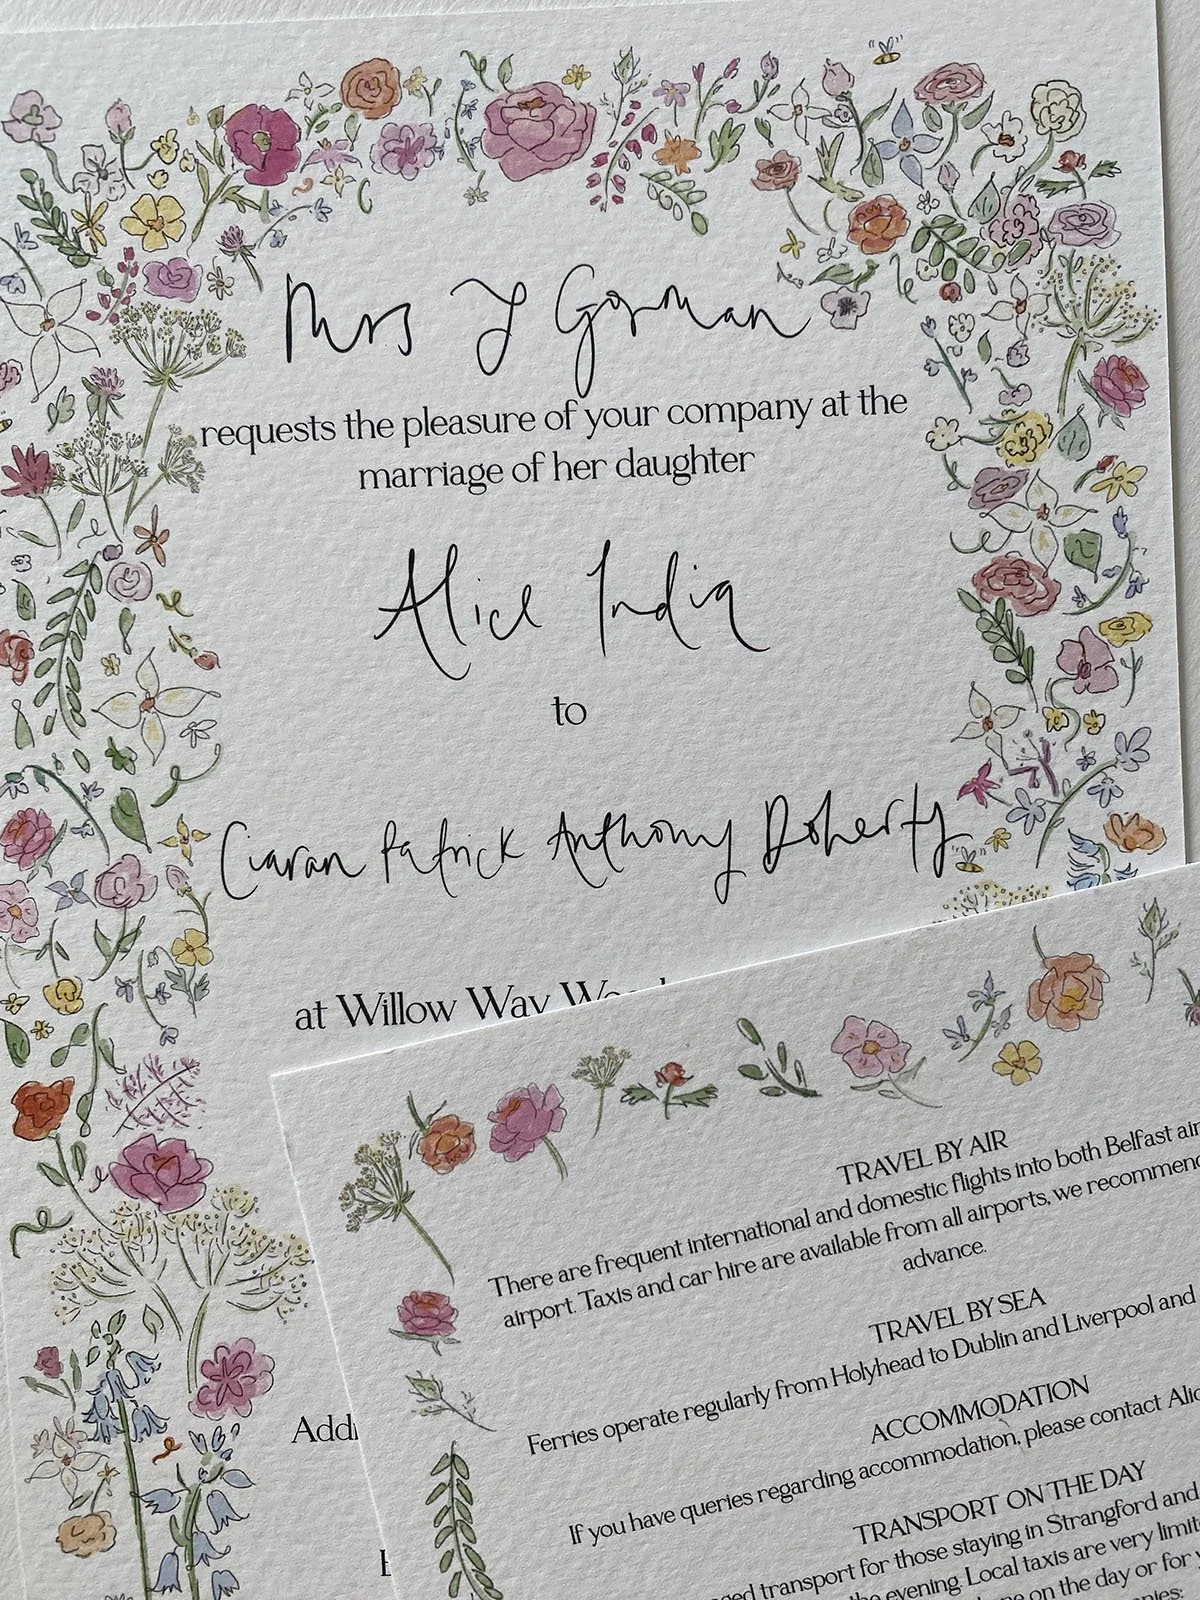 Mrs J Gorman
requests the pleasure of your company at the
marriage of her daughter
Alice India
to
Ciaran Patrick Anthony Doherty
at Willow Way
TRAVEL BY AIR
There are frequent international and domestic flights into both Belfast
airport. Taxis and car hire are available from all airports, we recommend
advance.
TRAVEL BY SEA
Ferries operate regularly from Holyhead to Dublin and Liverpool and
ACCOMMODATION
If you have queries regarding accommodation, please contact
TRANSPORT ON THE DAY
transport for those staying in Strangford and
the evening. Local taxis are very
on the day or for